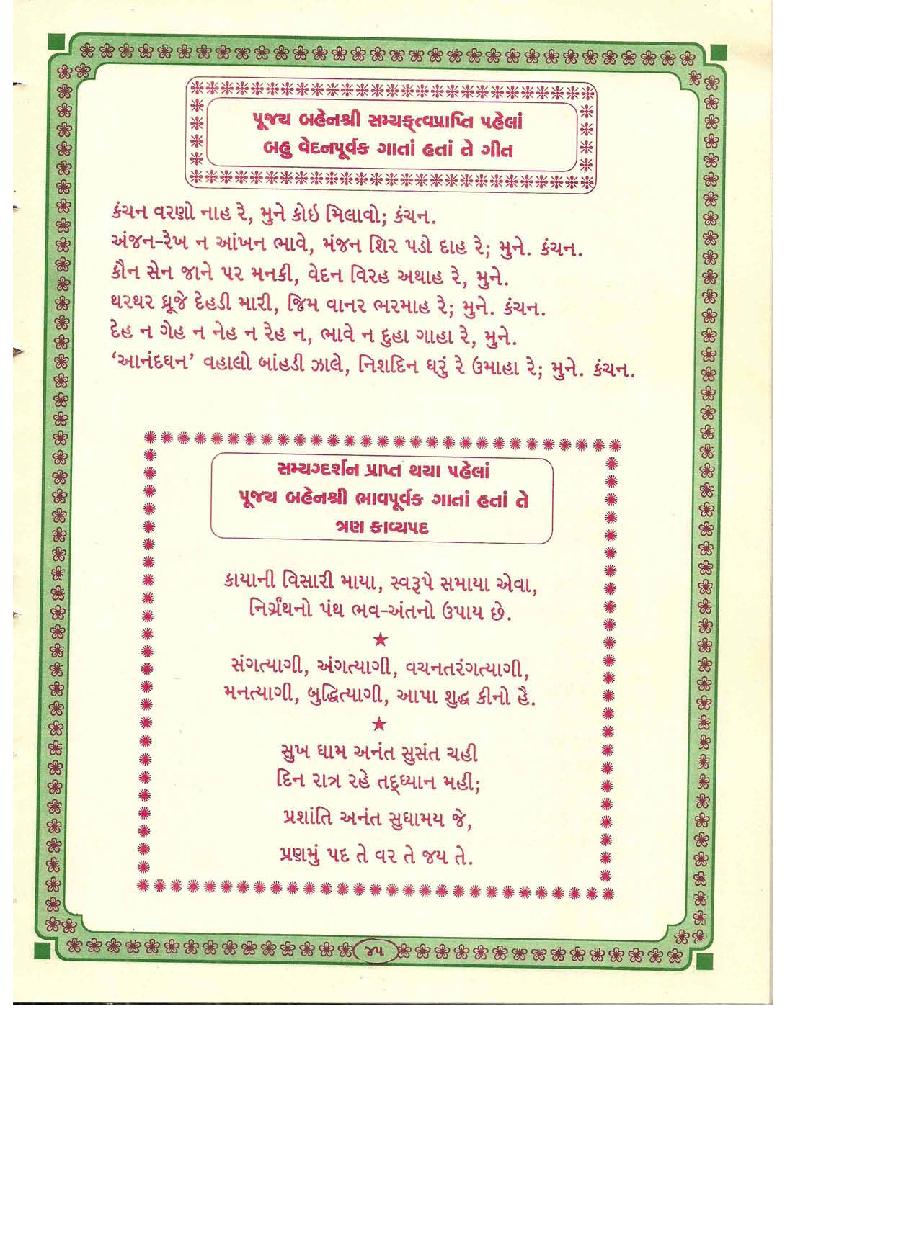 પૂજ્ય બહેનશ્રી સમ્યક્ત્વપ્રાપ્તિ પહેલાં
બહુ વેદનપૂર્વક ગાતાં હતાં તે ગીત
કંચન વરણો નાહ રે, મુને કોઇ મિલાવો; કંચન.
અંજન-રેખ ન આંખન ભાવે, મંજન શિર પડો દાહ રે; મુને. કંચન.
કૌન સેન જાને પર મનકી, વેદન વિરહ અથાહ રે, મુને.
થરથર ધ્રૂજે દેહડી મારી, જિમ વાનર ભરમાહ રે; મુને. કંચન.
દેહ ન ગેહ ન નેહ ન રેહ ન, ભાવે ન દુહા ગાહા રે, મુને.
‘આનંદઘન’ વહાલો બાંહડી ઝાલે, નિશદિન ધરું રે ઉમાહા રે; મુને. કંચન.
સમ્યગ્દર્શન પ્રાપ્ત થયા પહેલાં
પૂજ્ય બહેનશ્રી ભાવપૂર્વક ગાતાં હતાં તે
ત્રણ કાવ્યપદ
કાયાની વિસારી માયા, સ્વરૂપે સમાયા એવા,
નિર્ગ્રંથનો પંથ ભવ-અંતનો ઉપાય છે.
★
સંગત્યાગી, અંગત્યાગી, વચનતરંગત્યાગી,
મનત્યાગી, બુદ્ધિત્યાગી, આપા શુદ્ધ કીનો હૈ.
★
સુખ ધામ અનંત સુસંત ચહી
દિન રાત્ર રહે તદ્ધ્યાન મહી;
પ્રશાંતિ અનંત સુધામય જે,
પ્રણમું પદ તે વર તે જય તે.
૪૫